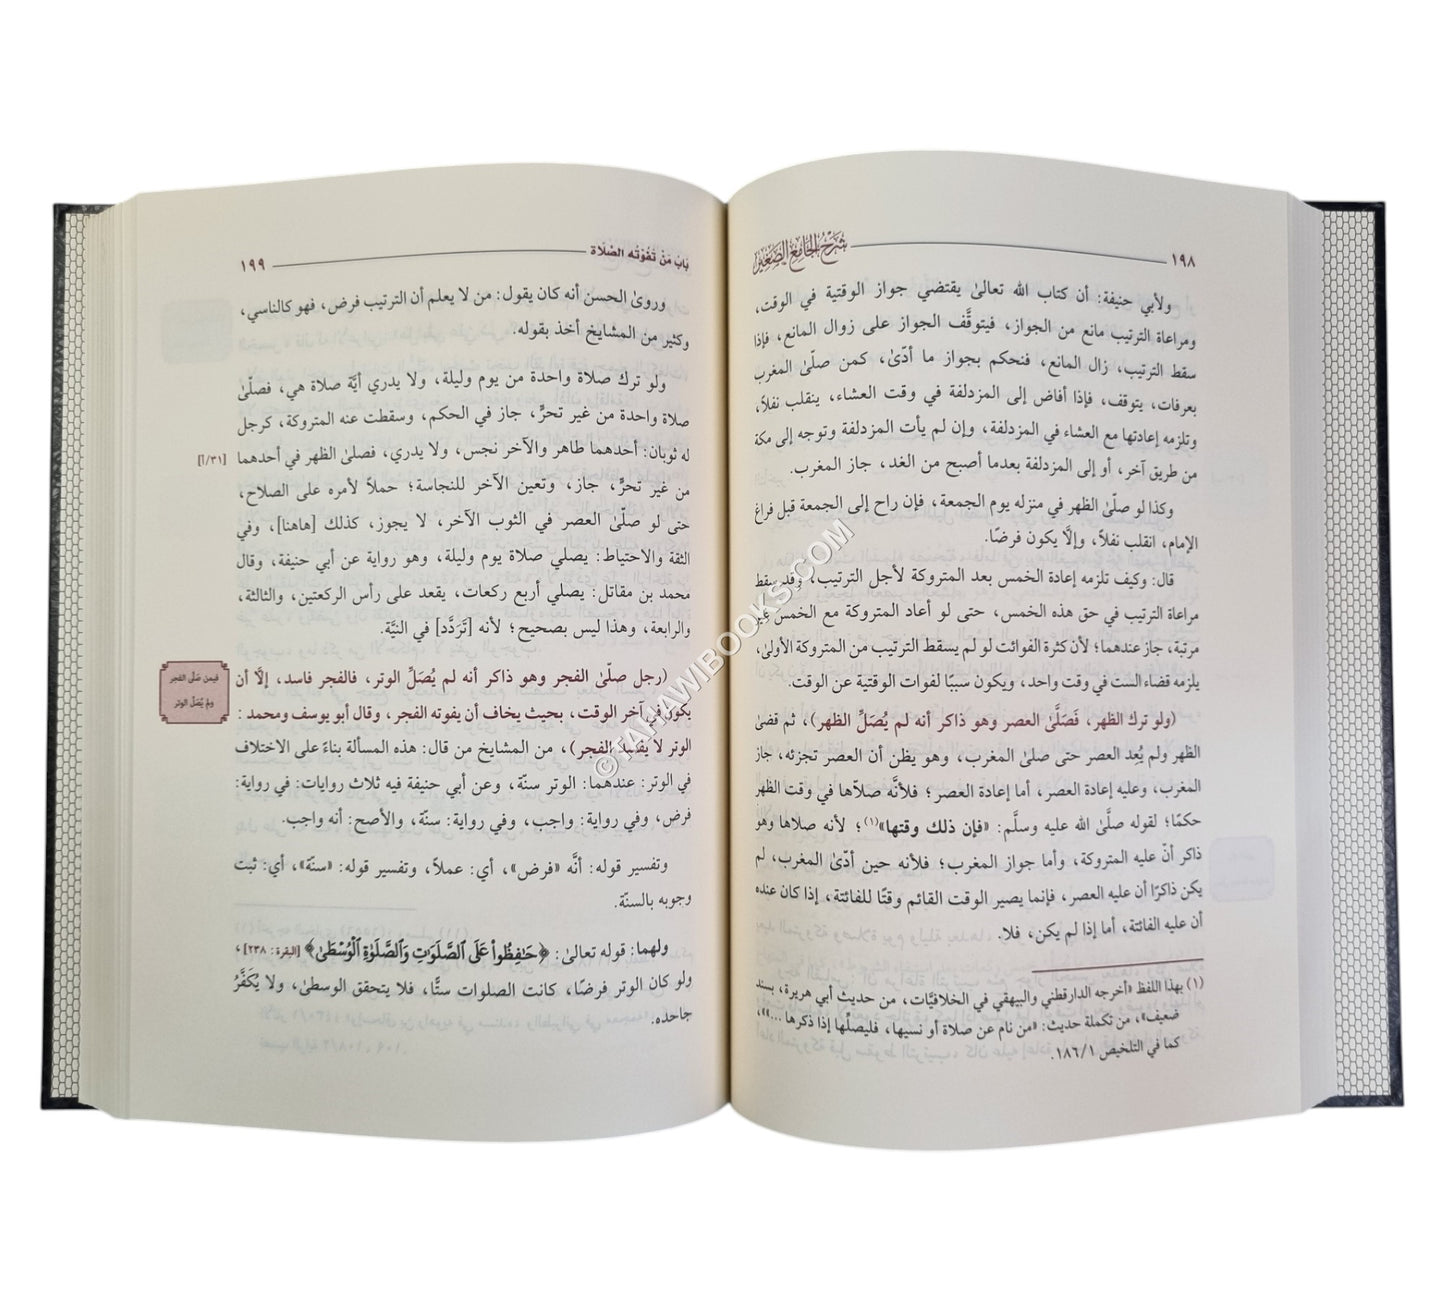 ١٩٨ شَرْحُ الجَامِعِ الصَّغِيْرِ
ولأبي حنيفة: أن كتاب الله تعالىٰ يقتضي جواز الوقتية في الوقت،
ومراعاة الترتيب مانع من الجواز، فيتوقَّف الجواز على زوال المانع، فإذا
سقط الترتيب، زال المانع، فنحكم بجواز ما أدّىٰ، كمن صلّىٰ المغرب
بعرفات، يتوقف، فإذا أفاض إلى المزدلفة في وقت العشاء، ينقلب نفلًا،
وتلزمه إعادتها مع العشاء في المزدلفة، وإن لم يأت المزدلفة وتوجه إلى مكة
من طريق آخر، أو إلى المزدلفة بعدما أصبح من الغد، جاز المغرب.
وكذا لو صلّىٰ الظهر في منزله يوم الجمعة، فإن راح إلى الجمعة قبل فراغ
الإمام، انقلب نفلًا، وإلَّا يكون فرضًا.
قال: وكيف تلزمه إعادة الخمس بعد المتروكة لأجل الترتيب، وقد سقط
مراعاة الترتيب في حق هذه الخمس، حتى لو أعاد المتروكة مع الخمس غير
مرتبة، جاز عندهما؛ لأن كثرة الفوائت لو لم يسقط الترتيب من المتروكة الأولىٰ،
يلزمه قضاء الست في وقت واحد، ويكون سببًا لفوات الوقتية عن الوقت.
(ولو ترك الظهر، فَصَلَّىٰ العصر وهو ذاكر أنه لم يُصَلِّ الظهر)، ثم قضىٰ
الظهر ولم يُعِد العصر حتى صلىٰ المغرب، وهو يظن أن العصر تجزئه، جاز
المغرب، وعليه إعادة العصر، أما إعادة العصر؛ فلأنَّه صلّاها في وقت الظهر
حكمًا؛ لقوله صلَّى الله عليه وسلَّم: «فإن ذلك وقتها»(١)؛ لأنه صلاها وهو
ذاكر أنّ عليه المتروكة، وأما جواز المغرب؛ فلأنه حين أدّىٰ المغرب، لم
يكن ذاكرًا أن عليه العصر، فإنما يصير الوقت القائم وقتًا للفائتة، إذا كان عنده
أن عليه الفائتة، أما إذا لم يكن، فلا.
(١) بهذا اللفظ «أخرجه الدارقطني والبيهقي في الخلافيَّات، من حديث أبي هريرة، بسند
ضعيف»، من تكملة حديث: «من نام عن صلاة أو نسيها، فليصلِّها إذا ذكرها ...»»،
كما في التلخيص ١٨٦/١.
بَابُ مَنْ تَفُوْتُه الصَّلَاة ١٩٩
وروىٰ الحسن أنه كان يقول: من لا يعلم أن الترتيب فرض، فهو كالناسي،
وكثير من المشايخ أخذ بقوله.
ولو ترك صلاة واحدة من يوم وليلة، ولا يدري أيَّة صلاة هي، فصلّىٰ
صلاة واحدة من غير تحرٍّ، جاز في الحكم، وسقطت عنه المتروكة، كرجل
له ثوبان: أحدهما طاهر والآخر نجس، ولا يدري، فصلىٰ الظهر في أحدهما [٣١/أ]
من غير تحرٍّ، جاز، وتعين الآخر للنجاسة؛ حملاً لأمره على الصلاح،
حتى لو صلّىٰ العصر في الثوب الآخر، لا يجوز، كذلك [هاهنا]، وفي
الثقة والاحتياط: يصلي صلاة يوم وليلة، وهو رواية عن أبي حنيفة، وقال
محمد بن مقاتل: يصلي أربع ركعات، يقعد على رأس الركعتين، والثالثة،
والرابعة، وهذا ليس بصحيح؛ لأنه [تَرَدَّد] في النيَّة.
فيمن صَلَّى الفجر
ولم يُصَلِّ الوتر
(رجل صلّىٰ الفجر وهو ذاكر أنه لم يُصَلِّ الوتر، فالفجر فاسد، إلَّا أن
يكون في آخر الوقت، بحيث يخاف أن يفوته الفجر، وقال أبو يوسف ومحمد:
الوتر لا يفسد الفجر)، من المشايخ من قال: هذه المسألة بناءً على الاختلاف
في الوتر: عندهما: الوتر سنّة، وعن أبي حنيفة فيه ثلاث روايات: في رواية:
فرض، وفي رواية: واجب، وفي رواية: سنّة، والأصح: أنه واجب.
وتفسير قوله: أنَّه «فرض»، أي: عملاً، وتفسير قوله: «سنّة»، أي: ثبت
وجوبه بالسنّة.
ولهما: قوله تعالىٰ: ﴿حَٰفِظُواْ عَلَى ٱلصَّلَوَٰتِ وَٱلصَّلَوٰةِ ٱلْوُسْطَىٰ﴾ [البقرة: ٢٣٨]،
ولو كان الوتر فرضًا، كانت الصلوات ستًّا، فلا يتحقق الوسطىٰ، ولا يُكَفَّرُ
جاحده.
©TAHAWIBOOKS.COM